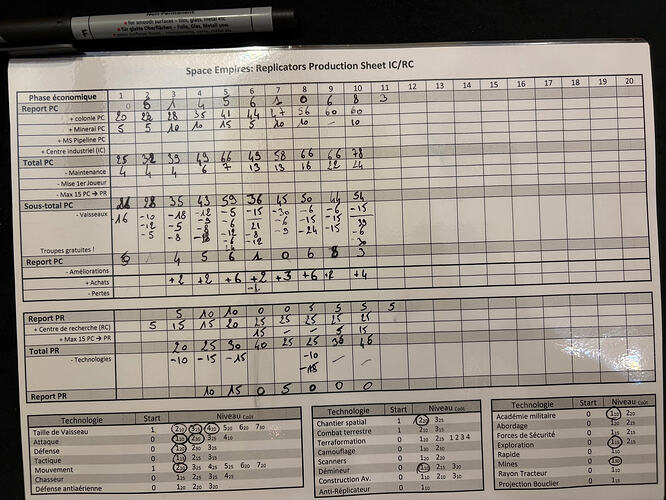 Non-Permanent
• for smooth surfaces - film, glass, metal etc.
• für glatte Oberflächen - Folie, Glas, Metall usw.
F
Space Empires: Replicators Production Sheet IC/RC
Phase économique 1 2 3 4 5 6 7 8 9 10 11 12 13 14 15 16 17 18 19 20
Report PC 0 1 4 5 6 1 0 6 8 3
+ colonie PC 20 28 35 41 44 47 56 60 60
+ Mineral PC 5 5 10 10 15 5 10 10 - 10
+ MS Pipeline PC
+ Centre industriel (IC)
Total PC 25 39 49 66 49 58 66 66 78
- Maintenance 4 4 4 6 7 13 13 16 22 24
- Mise 1er Joueur
- Max 15 PC → PR
Sous-total PC 28 35 43 59 36 45 50 44 54
- Vaisseaux -16 -10 -18 -12 -5 -15 -30 -6 -6 -15
-12 -5 -9 -6 -15 -15 -15
-5 -8 -12 -8 -9 -24 -15 -6
-6 -12 30
Troupes gratuites !
Report PC 4 5 6 1 0 6 8 3
- Améliorations
+ Achats +2 +2 +6 +2 +3 +6 +2 +4
- Pertes
Report PR 5 10 10 0 0 5 5 5 5
+ Centre de recherche (RC) 5 15 15 20 25 25 25 25 25
+ Max 15 PC → PR 15 - - 5 15
Total PR 20 25 30 40 25 25 30
- Technologies -10 -15 -15 -10 - -
-15
Report PR 10 15 0 5 0 0 0
Technologie Start Niveau Coût
Taille de Vaisseau 1 2 10 3 15 4 20 5 20 6 20 7 30
Attaque 0 1 20 2 30 3 25 4 10
Défense 0 1 20 2 30 3 25
Tactique 0 1 15 2 15 3 15
Mouvement 1 2 20 3 25 4 25 5 25 6 20 7 20
Chasseur 0 1 25 2 25 3 25 4 25
Défense antiaérienne 0 1 20 2 20 3 20
Technologie Start Niveau Coût
Chantier spatial 1 2 20 3 25
Combat terrestre 1 2 10 3 15
Terraformation 0 1 25 2 25
Camouflage 0 1 30 2 30
Scanners 0 1 20 2 20
Démineur 0 1 10 2 15 3 20
Construction Av. 0 1 10 2 10 3 10
Anti-Réplicateur 0 1 10
Technologie Start Niveau Coût
Académie militaire 0 1 10 2 20
Abordage 0 1 20 2 25
Forces de Sécurité 0 1 15 2 15
Exploration 0 1 15 2 15
Rapide 0 1 10
Mines 0 1 30
Rayon Tracteur 0 1 10
Projection Bouclier 0 1 15